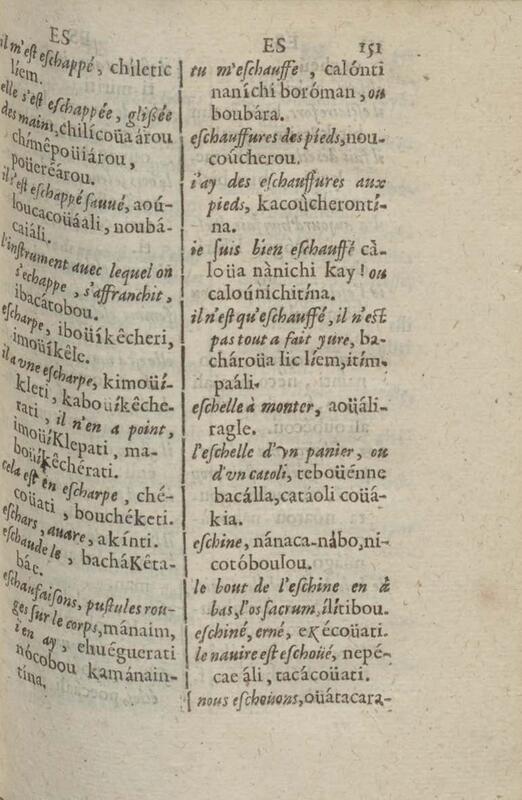 ES
il m'est eschappé, chíletic
líem.
elle s'est eschappée, glissée
des mains, chilícoüa árou
chímêpoüiárou,
poüeréárou.
il s'est eschappé sauué, aoú-
loucacoüáali, noubá-
caiáli.
l'instrument auec lequel on
s'echappe, s'affranchit,
ibacátobou.
escharpe, iboüíkêcheri,
imoüíkêle.
il a vne escharpe, kimoüí-
kleti, kaboüíkêche-
rati, il n'en a point,
imoüíKlepati, ma-
boüíkêchérati.
cela est en escharpe, ché-
coüati, bouchéketi.
eschars, auare, akínti.
eschaudele, bacháKêta-
bác.
eschaufaisons, pustules rou-
ges sur le corps, mánaim,
i'en ay, ehuéguerati
nócobou kamánain-
tína.
ES 151
tu m'eschauffe, calónti
naníchi boróman, ou
boubára.
eschauffures des pieds, nou-
coúcherou.
i'ay des eschauffures aux
pieds, kacoùcherontí-
na.
ie suis bien eschauffé cà-
loüa nànichi kay! ou
caloúnichitína.
il n'est qu'eschauffé, il n'est
pas tout a fait yure, ba-
chároüa lic líem, itím-
paáli.
eschelle à monter, aoüáli-
ragle.
l'eschelle d'vn panier, ou
d'vn catoli, teboüénne
bacálla, catáoli coüá-
kia.
eschine, nánaca-nábo, ni-
cotóboulou.
le bout de l'eschine en à
bas, l'os sacrum, ilítibou.
eschiné, erné, eKécoüati.
le nauire est eschoüé, nepé-
cae áli, tacácoüati.
nous eschoüons, oüátacara-